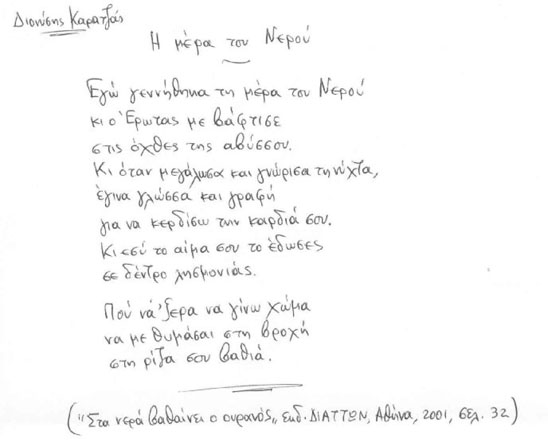 Διονύσης Καρατζάς
Η μέρα του Νερού
Εγώ γεννήθηκα τη μέρα του Νερού
κι ο Έρωτας με βάφτισε
στις όχθες της αβύσσου.
Κι όταν μεγάλωσα και γνώρισα τη νύχτα,
έγινα γλώσσα και γραφή
για να κερδίσω την καρδιά σου.
Κι εσύ το αίμα σου το έδωσες
σε δέντρο λησμονιάς.
Πού νά 'ξερα να γίνω χώμα
να με θυμάσαι στη βροχή
στη ρίζα σου βαθιά.
("Στα νερά βαθαίνει ο ουρανός", εκδ. ΔΙΑΤΤΩΝ, Αθήνα, 2001, σελ. 32)